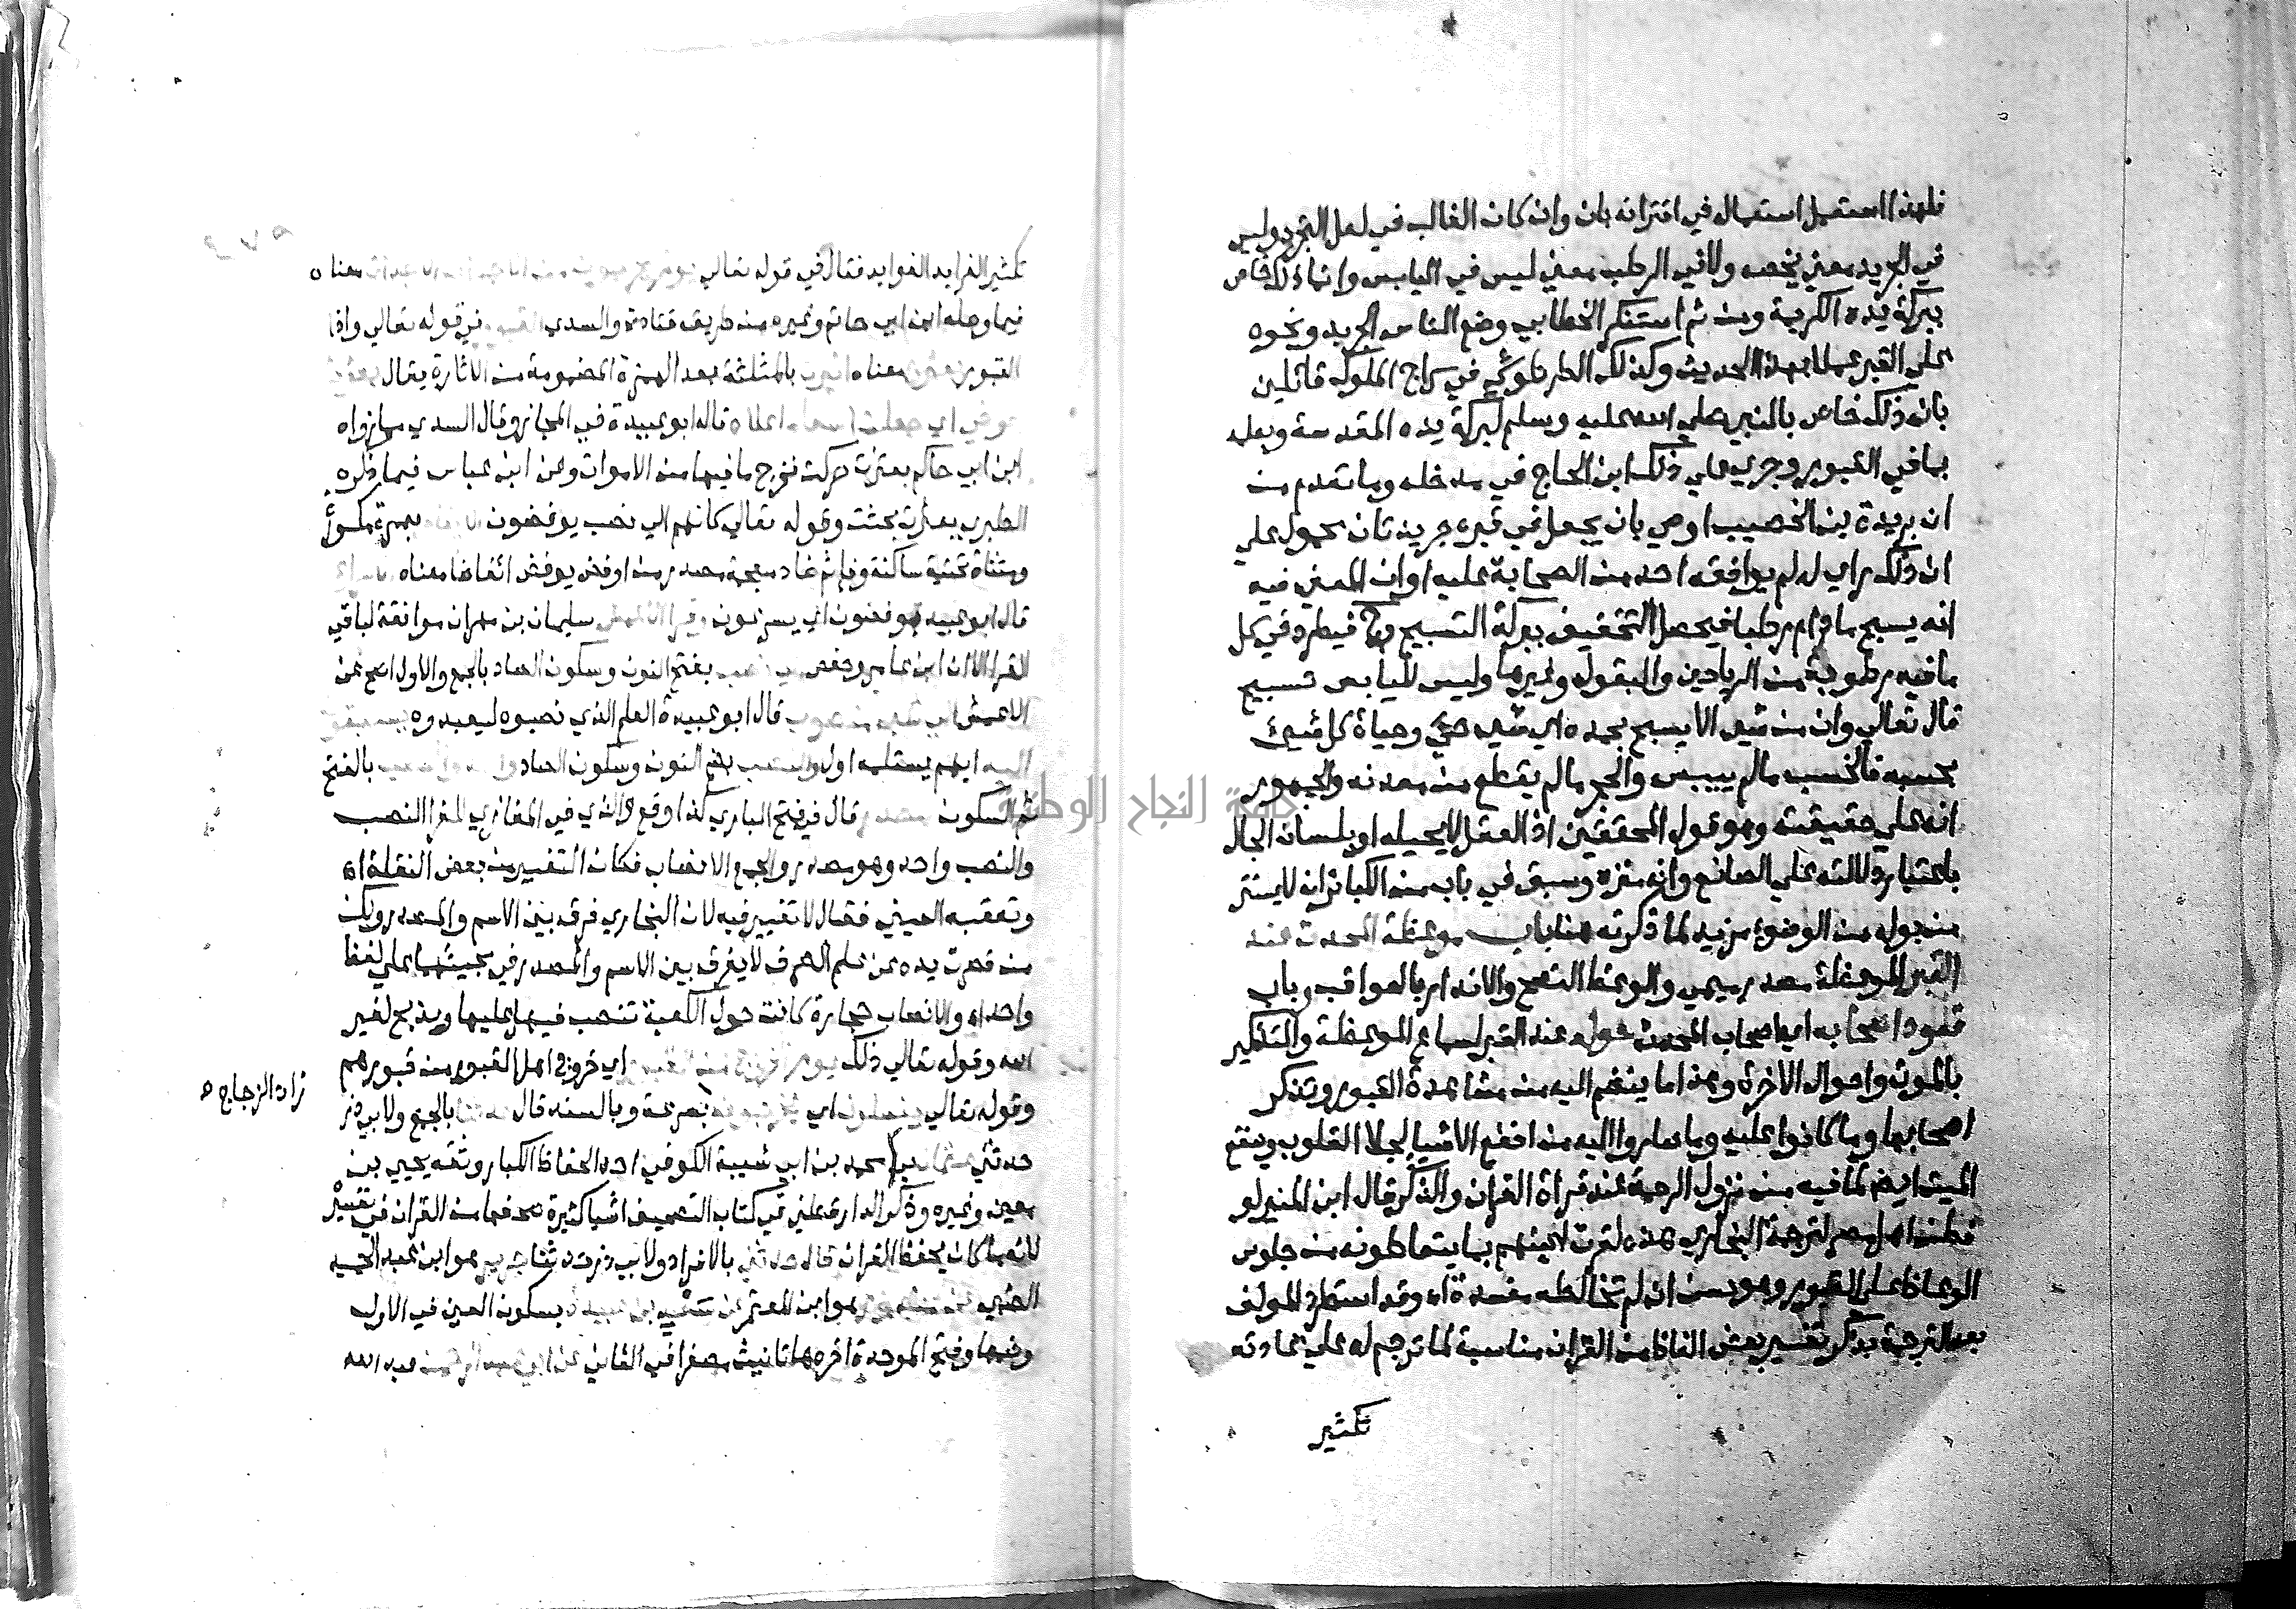 فلهذا استعمل استعماله في اقترانه بان وان كان الغالب في لعل التجرد وليس
في الجريد معني يخصه ولا في الرطب معني ليس في اليابس وانما ذلك خاص
ببركة يده الكريمة ومن ثم استنكر الخطابي وضع الناس الجريد ونحوه
علي القبر عملا بهذا الحديث وكذلك الطرطوشي في سراج الملوك قائلين
بان ذلك خاص بالنبي صلي الله عليه وسلم لبركة يده المقدسة وبعلمه
بما في القبور وجري علي ذلك ابن الحاج في مدخله وما تقدم من
ان بريدة بن الخصيب اوصي بان يجعل في قبره جريدتان محمول علي
ان ذلك راي له لم يوافقه احد من الصحابة عليه او ان المعني فيه
انه يسبح ما دام رطبا فيحصل التخفيف ببركة التسبيح وح فيطرد في كل
ما فيه رطوبة من الرياحين والبقول وغيرها وليس لليابس تسبيح
قال تعالي وان من شي الا يسبح بحمده اي شي حي وحياة كل شي
بحسبه فالخشب مالم ييبس والحجر مالم يقطع من معدنه والجمهور
انه علي حقيقته وهو قول المحققين اذ العقل لا يحيله او بلسان الحال
باعتبار دلالته علي الصانع وانه منزه وسبق في باب من الكبائر ان لا يستتر
من بوله من الوضوء مزيد لما ذكرته هنا باب موعظة المحدث عند
القبر الموعظة مصدر ميمي والوعظ النصح والانذار بالعواقب وباب
قعود اصحابه اي اصحاب المحدث حوله عند القبر لسماع الموعظة والتذكير
بالموت واحوال الاخرة وهذا ما ينضم اليه من مشاهدة القبور وتذكر
اصحابها وما كانوا عليه وما صاروا اليه من انفع الاشيا لجلا القلوب وينفع
الميت ايضا لما فيه من نزول الرحمة عند قراة القران والذكر قال ابن المنير لو
فطن اهل مصر لترجمة البخاري هذه لقرت اعينهم بما يتعاطونه من جلوس
الوعاظ علي القبور وهو حسن ان لم تخالطه مفسدة اه وقد استطرد المولف
بعد الترجمة بذكر تفسير بعض الفاظ من القران مناسبة لما ترجم له علي عادته
تكثير
تكثير الفرايد الفوايد فقال في قوله تعالي يوم يخرجون من الاجداث معناه
فيما وصله ابن ابي حاتم وغيره من طريق قتادة والسدي القبور في قوله تعالي واذا
القبور بعثرت معناه اثيرت بالمثلثة بعد الهمزة المضمومة من الاثارة يقال بعثرت
حوضي اي جعلت اسفله اعلاه قاله ابو عبيدة في المجاز وقال السدي مما رواه
ابن ابي حاكم بعثرت حركت فخرج ما فيها من الاموات وعن ابن عباس فيما ذكره
الطبري بعثرت بحثت وقوله تعالي كانهم الي نصب يوفضون الايفاض بهمزة مكسورة
ومثناة تحتية ساكنة وفا ثم ضاد معجمة مصدر من اوفض يوفض ايفاضا معناه الاسراع
قال ابو عبيدة يوفضون اي يسرعون وقرا الاعمش سليمان بن مهران موافقة لباقي
القرا الا ابن عامر وحفص الي نصب بفتح النون وسكون الصاد بالجمع والاول اصح عن
الاعمش الي شي منصوب قال ابو عبيدة العلم الذي نصبوه ليعبدوه يستبقون
اليه ايهم يستلمه اول والنصب بضم النون وسكون الصاد واحد والنصب بالفتح
ثم السكون مصدر قال في فتح الباري كذا وقع والذي في المغازي للفرا النصب
والنصب واحد وهو مصدر والجمع الانصاب فكان التغيير من بعض النقلة اه
وتعقبه العيني فقال لا تغيير فيه لان البخاري فرق بين الاسم والمصدر ولكن
من قصرت يده عن علم الصرف لا يفرق بين الاسم والمصدر في مجيئهما علي لفظ
واحد اه والانصاب حجارة كانت حول الكعبة تنصب فيهل عليها ويذبح لغير
الله وقوله تعالي ذلك يوم الخروج من القبور اي خروج اهل القبور من قبورهم
وقوله تعالي ينسلون اي يخرجون بصرعة وبالسند قال حدثنا بالجمع ولابي ذر
زاد الزجاج ه
حدثني عثمان بن محمد بن ابي شيبة الكوفي احد الحفاظ الكبار وثقه يحيي بن
معين وغيره وذكر الدارقطني في كتاب التصحيف اشيا كثيرة صحفها من القران في تفسير
لانه ما كان يحفظ القران قال حدثني بالافراد ولابي ذر حدثنا جرير هو ابن عبد الحميد
الضبي عن منصور هو ابن المعتمر عن سعد بن عبيدة بسكون العين في الاول
وضمها وفتح الموحدة اخره ها تانيث مصغرا في الثاني عن ابي عبد الرحمن عبد الله
جامعة النجاح الوطنية